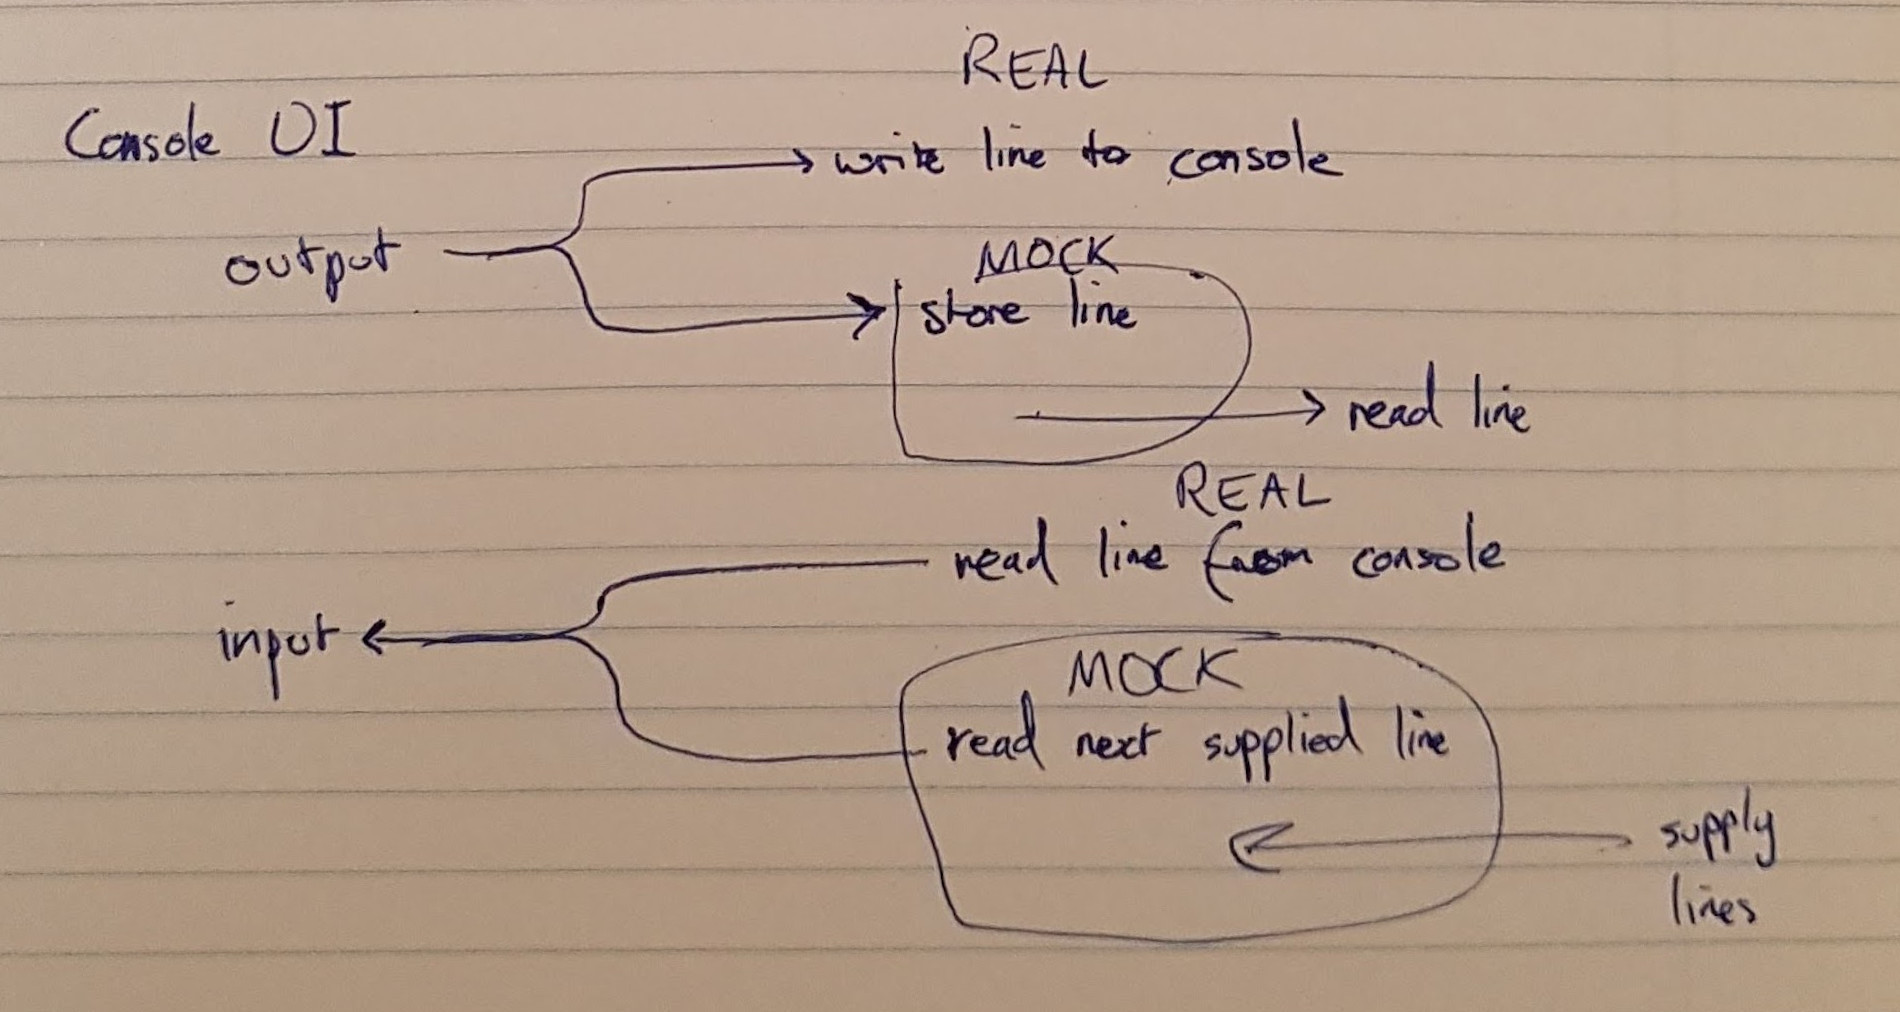 REAL
Console UI
write line to console
output
MOCK
store line
read line
REAL
read line from console
input
MOCK
read next supplied line
supply
lines